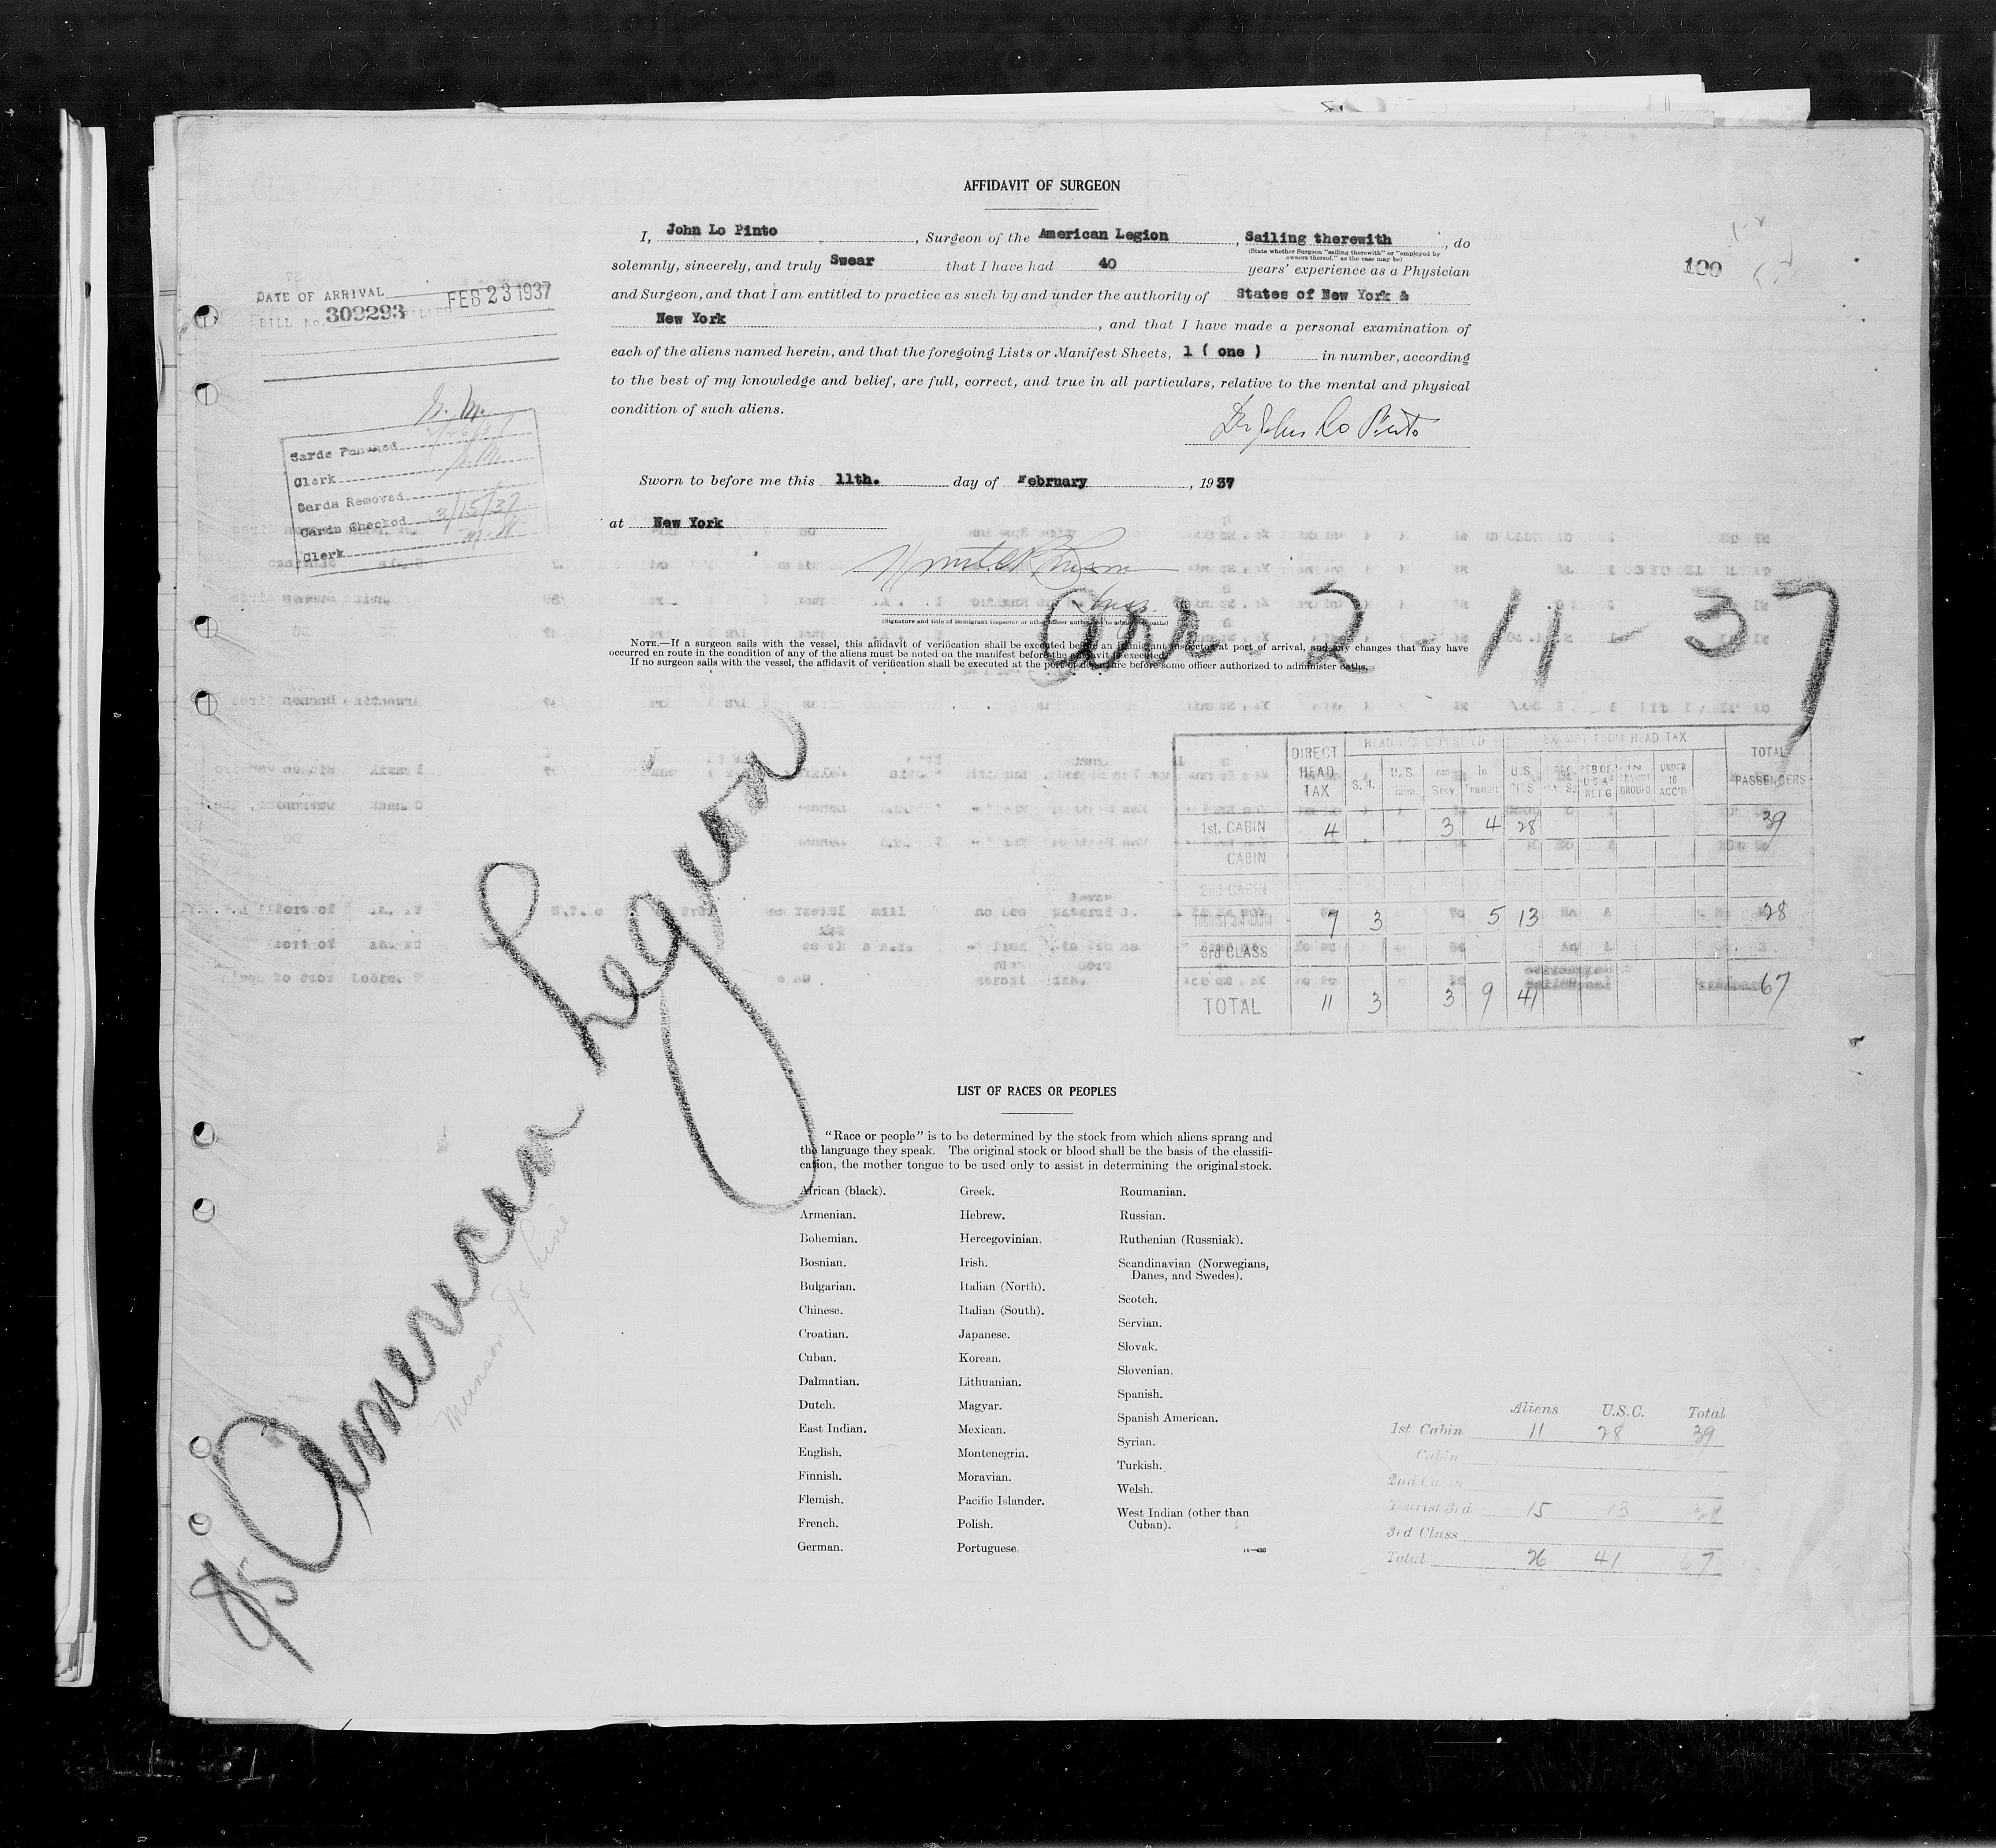 AFFIDAVIT OF SURGEON
I, John Lo Pinto, Surgeon of the American Legion, Sailing therewith, do
(State whether Surgeon "sailing therewith" or "employed by
owners thereof," as the case may be)
solemnly, sincerely, and truly Swear that I have had 40 years' experience as a Physician
and Surgeon, and that I am entitled to practice as such by and under the authority of States of New York &
New York, and that I have made a personal examination of
each of the aliens named herein, and that the foregoing Lists or Manifest Sheets, 1 ( one ) in number, according
to the best of my knowledge and belief, are full, correct, and true in all particulars, relative to the mental and physical
condition of such aliens.
Dr John Lo Pinto
Sworn to before me this 11th. day of February, 1937
at New York
(Signature and title of immigrant inspector or other officer authorized to administer oaths)
NOTE.—If a surgeon sails with the vessel, this affidavit of verification shall be executed before an immigrant inspector at port of arrival, and any changes that may have
occurred en route in the condition of any of the aliens must be noted on the manifest before the affidavit is executed.
If no surgeon sails with the vessel, the affidavit of verification shall be executed at the port of departure before some officer authorized to administer oaths.
100
DATE OF ARRIVAL FEB 23 1937
BILL No. 309293
Cards Punched 2/26/37
Clerk
Cards Removed
Cards Checked 3/15/37
Clerk
Arr. 2-11-37
American Legion
Munson SS Line
DIRECT HEAD TAX
EXEMPT FROM HEAD TAX
TOTAL PASSENGERS
1st. CABIN 4 3 4 28 39
CABIN
2nd CABIN
7 3 5 13 28
3rd CLASS
TOTAL 11 3 3 9 41 67
LIST OF RACES OR PEOPLES
"Race or people" is to be determined by the stock from which aliens sprang and
the language they speak. The original stock or blood shall be the basis of the classifi-
cation, the mother tongue to be used only to assist in determining the original stock.
African (black).
Armenian.
Bohemian.
Bosnian.
Bulgarian.
Chinese.
Croatian.
Cuban.
Dalmatian.
Dutch.
East Indian.
English.
Finnish.
Flemish.
French.
German.
Greek.
Hebrew.
Hercegovinian.
Irish.
Italian (North).
Italian (South).
Japanese.
Korean.
Lithuanian.
Magyar.
Mexican.
Montenegrin.
Moravian.
Pacific Islander.
Polish.
Portuguese.
Roumanian.
Russian.
Ruthenian (Russniak).
Scandinavian (Norwegians,
Danes, and Swedes).
Scotch.
Servian.
Slovak.
Slovenian.
Spanish.
Spanish American.
Syrian.
Turkish.
Welsh.
West Indian (other than
Cuban).
Aliens U.S.C. Total
1st Cabin 11 28 39
Cabin
2nd Cabin
Tourist 3rd 15 13 28
3rd Class
Total 26 41 67